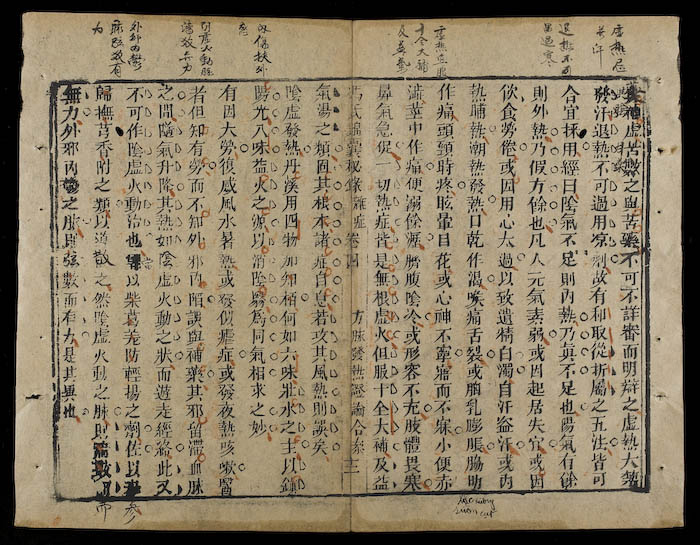 虛熱忌
發汗
退熱不可
過寒
十全大補
及益氣
內傷挾外
感
陰虛火動脈
濡數無力
外邪內鬱
脈弦數有
力
發汗退熱不可過用寒劑故有和取從折屬之五法皆可
合宜採用經曰陰氣不足則內熱乃真不足也陽氣有餘
則外熱乃假方餘也凡人元氣素弱或因起居失宜或因
飲食勞倦或因用心太過以致遺精白濁自汗盜汗或內
熱晡熱潮熱發熱口乾作渴喉痛舌裂或胸乳膨脹脇肋
作痛頭頸時疼眩暈目花或心神不寧寤而不寐小便赤
澁莖中作痛便溺餘瀝臍腹陰冷或形容不充肢體畏寒
鼻氣急促一切熱症皆是無根虛火但服十全大補及益
馮氏錦囊秘錄雜症 卷
方脉發熱證論合參
氣湯之類固其根本諸症自息若攻其風熱則誤矣
陰虛發熱丹溪用四物加知栢何如六味壯水之主以鎮
陽光八味益火之源以消陰翳為同氣相求之妙
有因大勞復感風水暑熱或發似瘧症或發夜熱咳嗽醫
者但知有勞而不知外邪內陷誤與補藥其邪留體血脉
之間隨氣升降其熱如陰虛火動之狀而遊走經絡此又
不可作陰虛火動治也 以柴葛羌防輕揚之劑佐以
歸撫芎香附之類以道散之然陰虛火動之脉則濡數
無力外邪內鬱之脉則弦數而有力是其異也